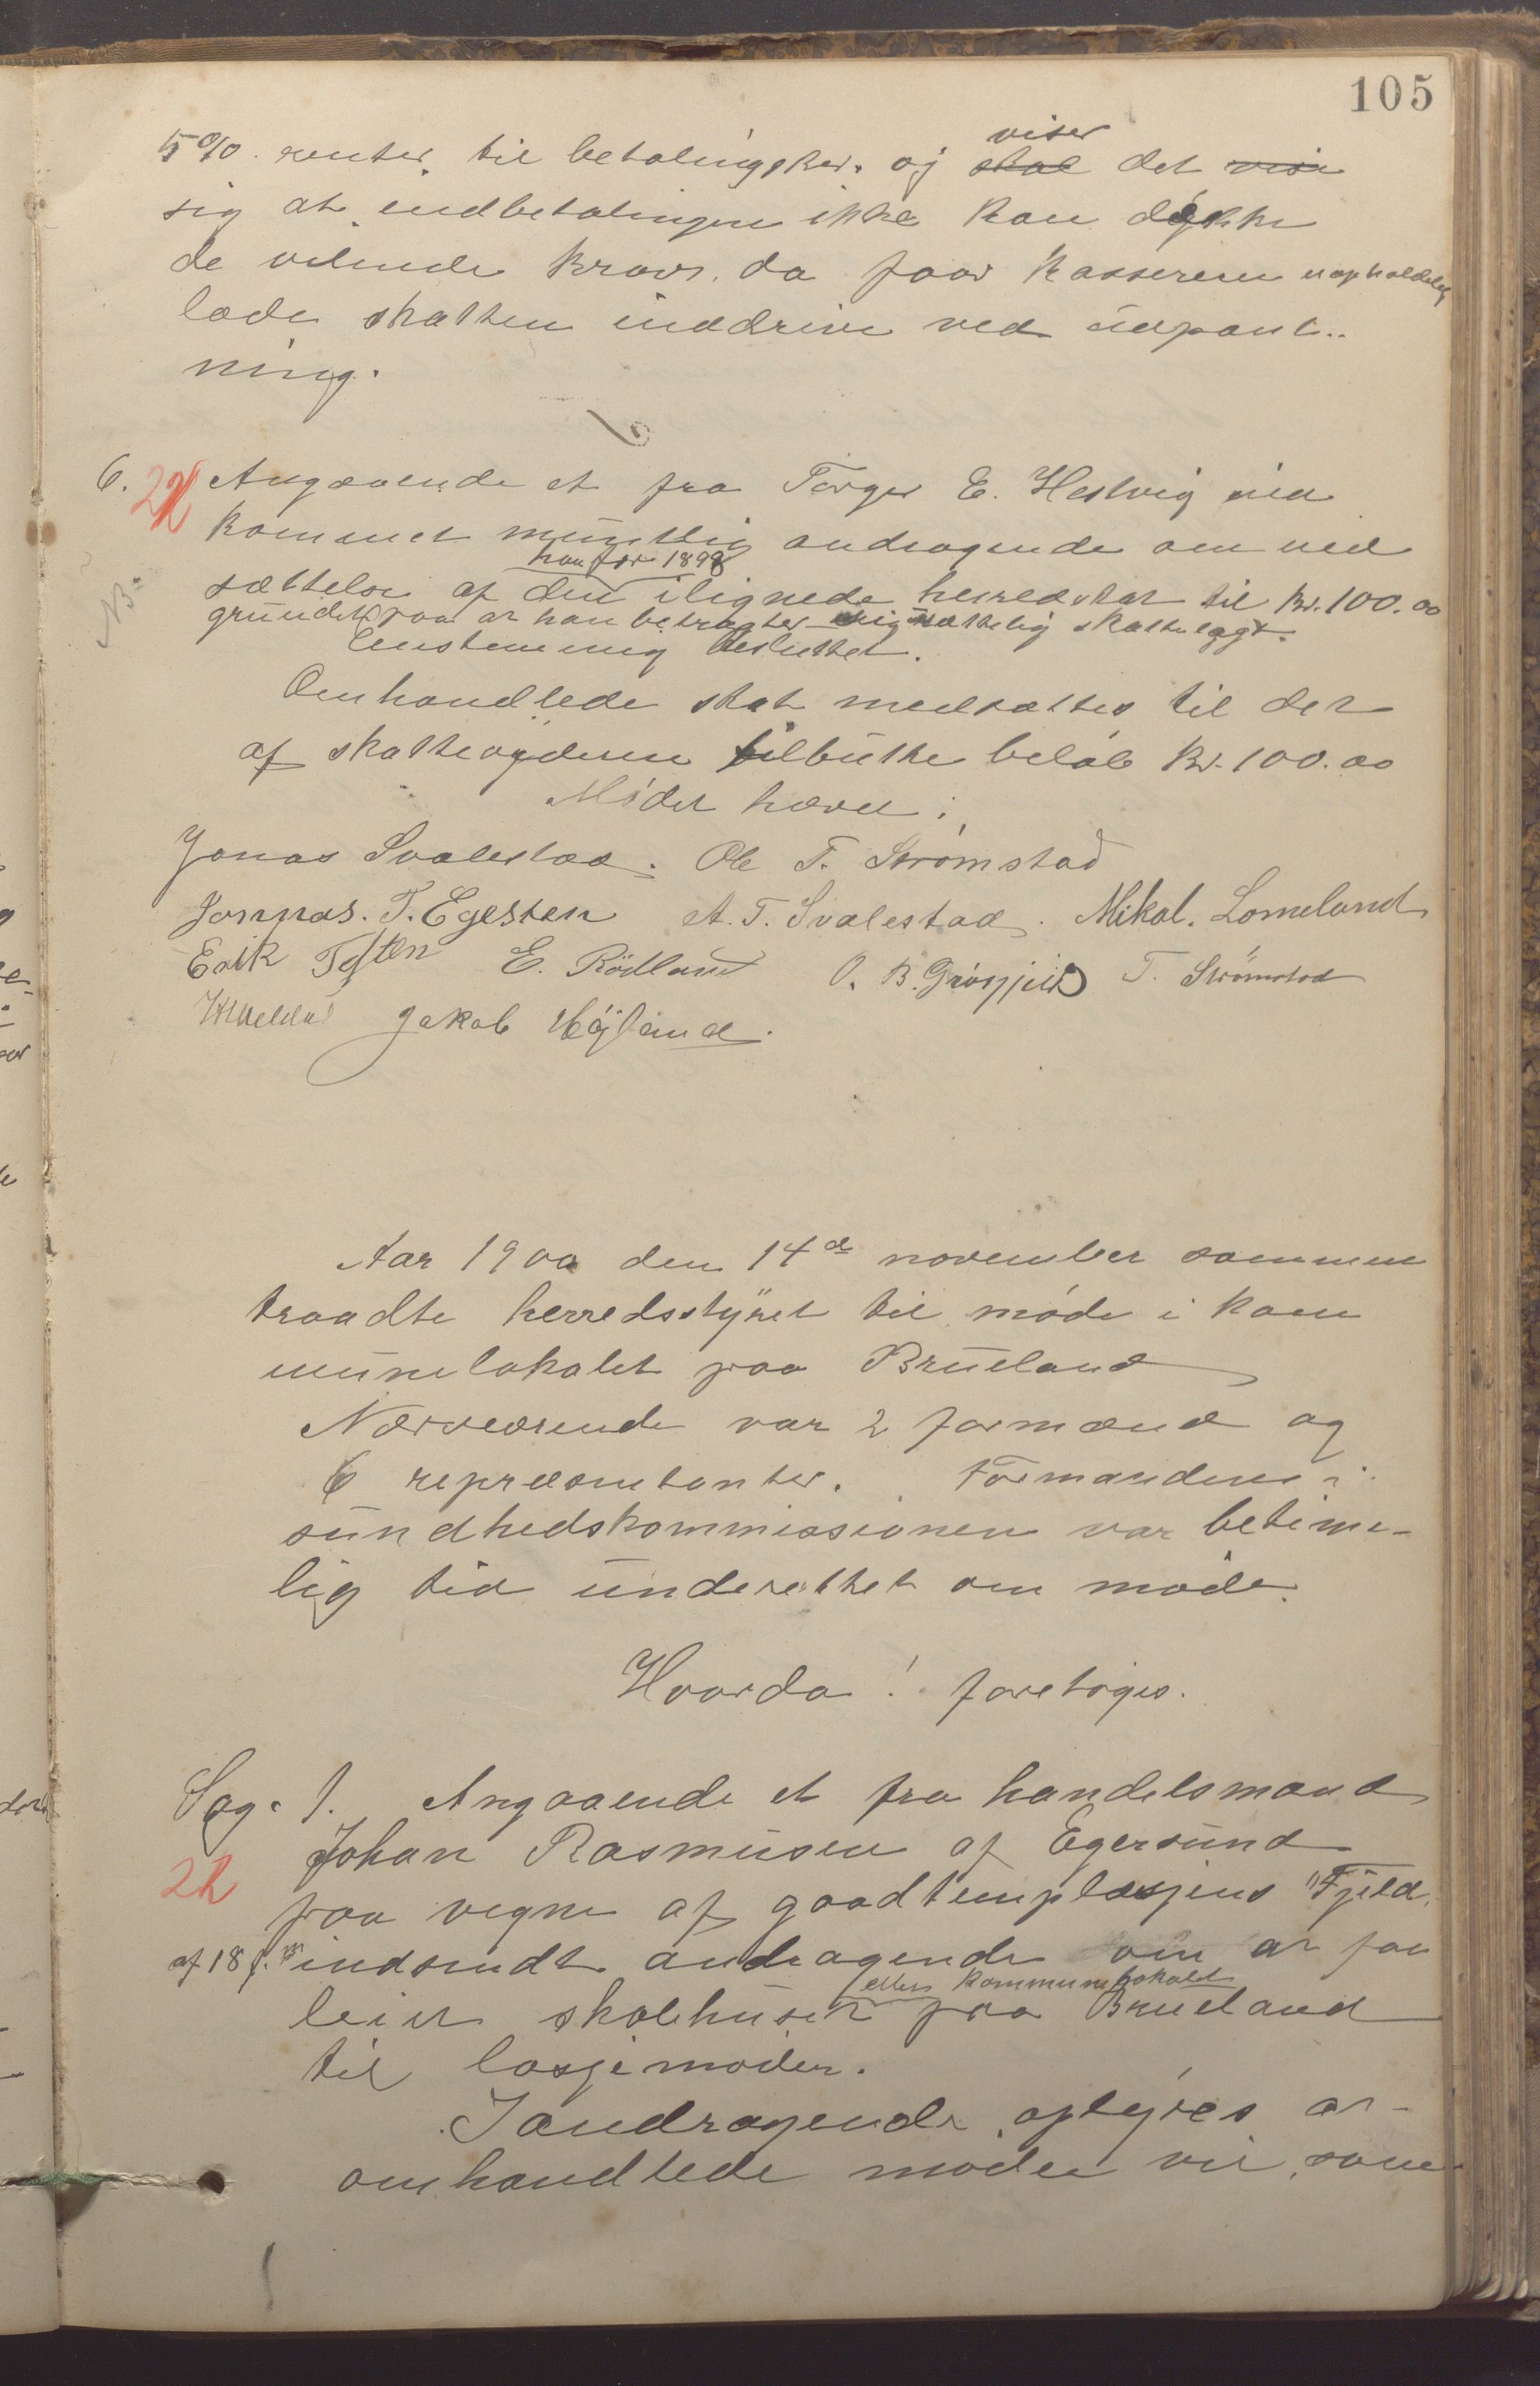 105
5 % renter til betalingsker. og viser skal det vise
sig at indbetalingen ikke kan dække
de værende krav, da faar kasseren uopholdelig
lade skatten inddrive ved udpant-
ning.
6. 22 Angaaende et fra Torger E. Hestvig ind
kommet mundtlig andragende om ned
ham for 1898
sættelse af den ilignede herredskat til kr. 100.00
grundet paa at han betragter sig uættelig skattelagt.
NB.
Eenstemmig besluttet.
Omhandlede skat nedsættes til det
af skatteyderen tilbudte beløb kr. 100.00
Mødet hævet:
Jonas Svalestad. Ole T. Strømstad
Jonnas. T. Egesten A. T. Svalestad. Mikal. Lomeland
Erik Testen E. Rödland O. B. Grøsfjeld T. Strømstad
Jakob Høyland.
Aar 1900 den 14de november sammen
traadte herredsstyret til møde i kom
munelokalet paa Brueland
Nærværende var 2 formænd og
6 repræsentanter. Formanden i
sundhedskommissionen var betime-
lig tid underettet om møde.
Hvorda! foretoges.
Sag. 1. Angaaende et fra handelsmand
22 Johan Rasmusen af Egersund
paa vegne af goodtemplosjens "Fjeld
af 18 f. m. indsendt andragende om at faa
eller kommunelokalet
leiet skolehuset paa Brueland
til losjemøder.
I andragende oplyses at
omhandlede møder vil som